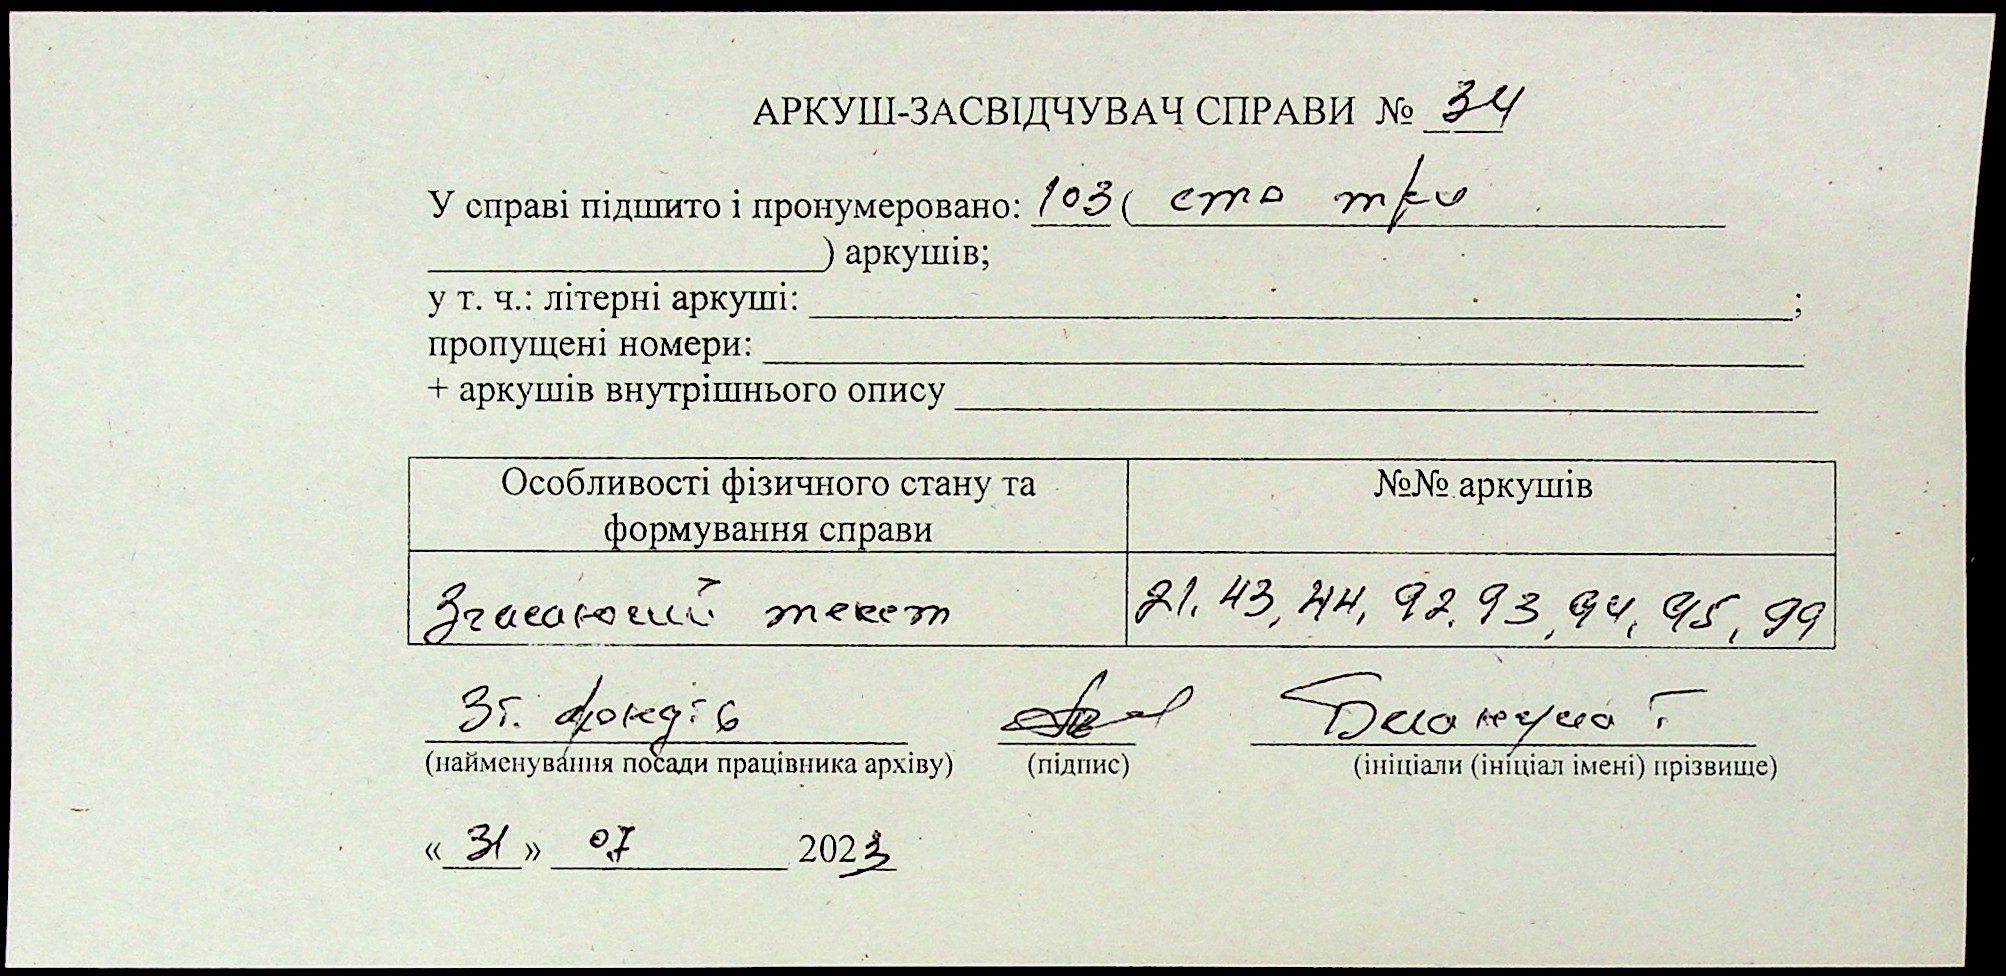 АРКУШ-ЗАСВІДЧУВАЧ СПРАВИ № 34
У справі підшито і пронумеровано: 103 ( сто три
) аркушів;
у т. ч.: літерні аркуші: ;
пропущені номери:
+ аркушів внутрішнього опису
Особливості фізичного стану та
формування справи
№№ аркушів
Згасаючий текст
21, 43, 44, 92, 93, 94, 95, 99
Зг. фондів
(найменування посади працівника архіву) (підпис) (ініціали (ініціал імені) прізвище)
« 31 » 07 2023